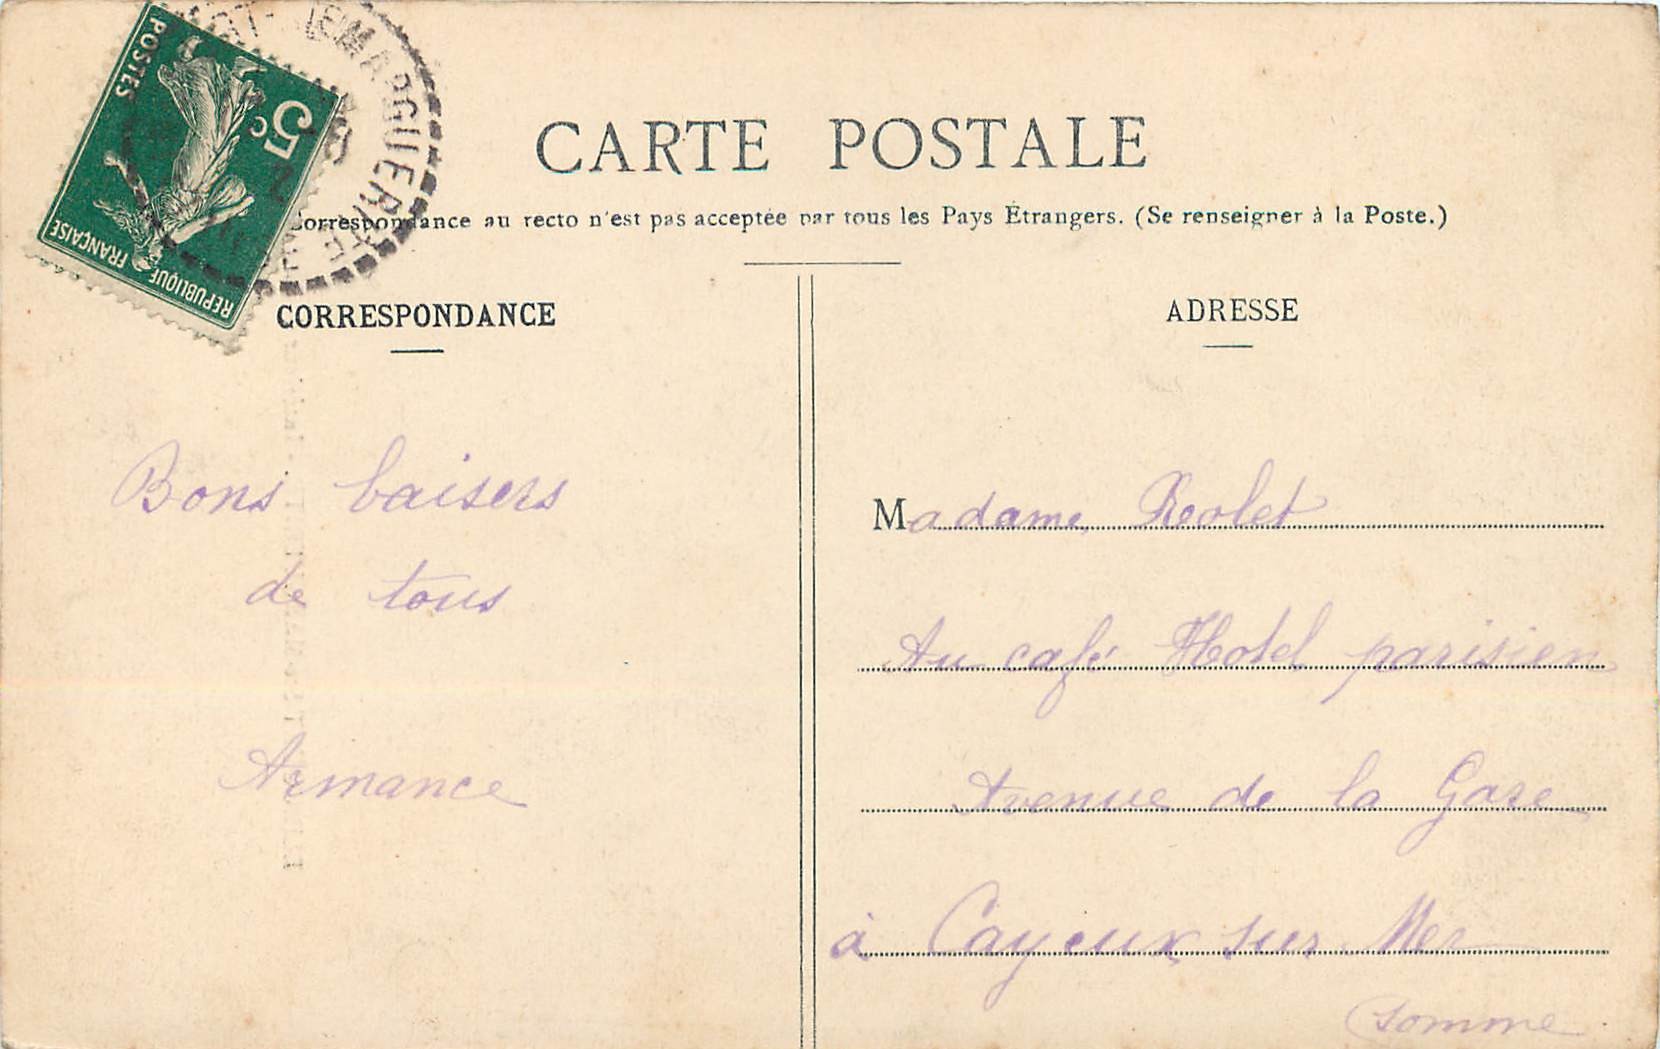 POSTES
5c
REPUBLIQUE FRANÇAISE
CARTE POSTALE
Correspondance au recto n'est pas acceptée par tous les Pays Étrangers. (Se renseigner à la Poste.)
CORRESPONDANCE
Bons baisers
de tous
Armance
ADRESSE
Madame Rolet
Au café Hotel parisien
Avenue de la Gare
à Cayeux sur Mer
Somme